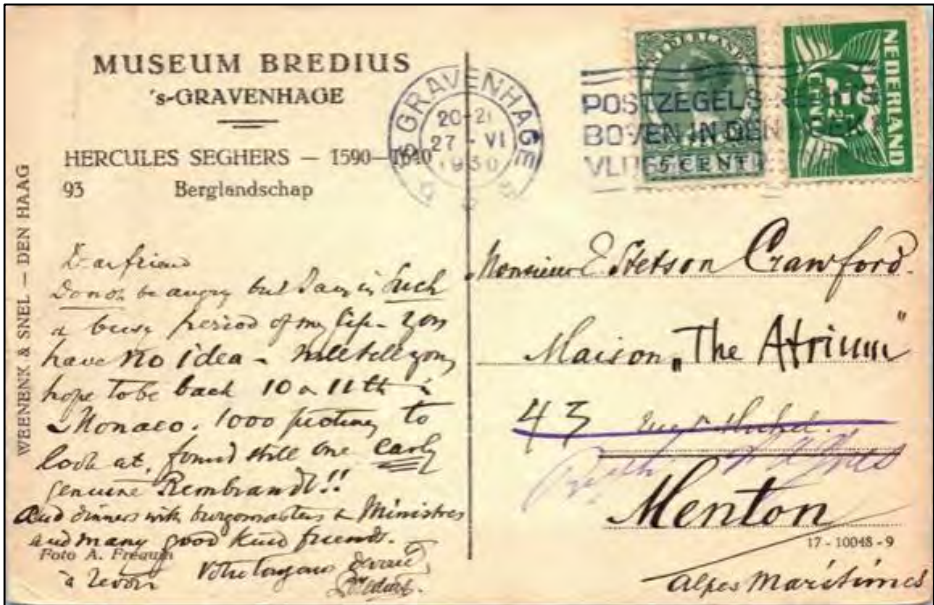 MUSEUM BREDIUS
's-GRAVENHAGE
HERCULES SEGHERS — 1590—1640
93 Berglandschap
WEENENK & SNEL — DEN HAAG
Dear friend
Do not be angry but I am in such
a busy period of my life. You
have no idea - will tell you,
hope to be back 10 a 11th à
Monaco. 1000 pictures to
look at, found still one early
genuine Rembrandt!!
And dinners with burgomasters & Ministres
and many good kind friends.
Foto A. Frequin
à revoir Votre toujours dévoué
ABredius.
's GRAVENHAGE
20-21
27 - VI
1930
POSTZEGELS RECHTS
BOVEN IN DEN HOEK
NEDERLAND
5 CENT
NEDERLAND
2½
CENT
Monsieur E. Stetson Crawford.
Maison „The Atrium"
43
Menton
17 - 10048 - 9
Alpes Maritimes